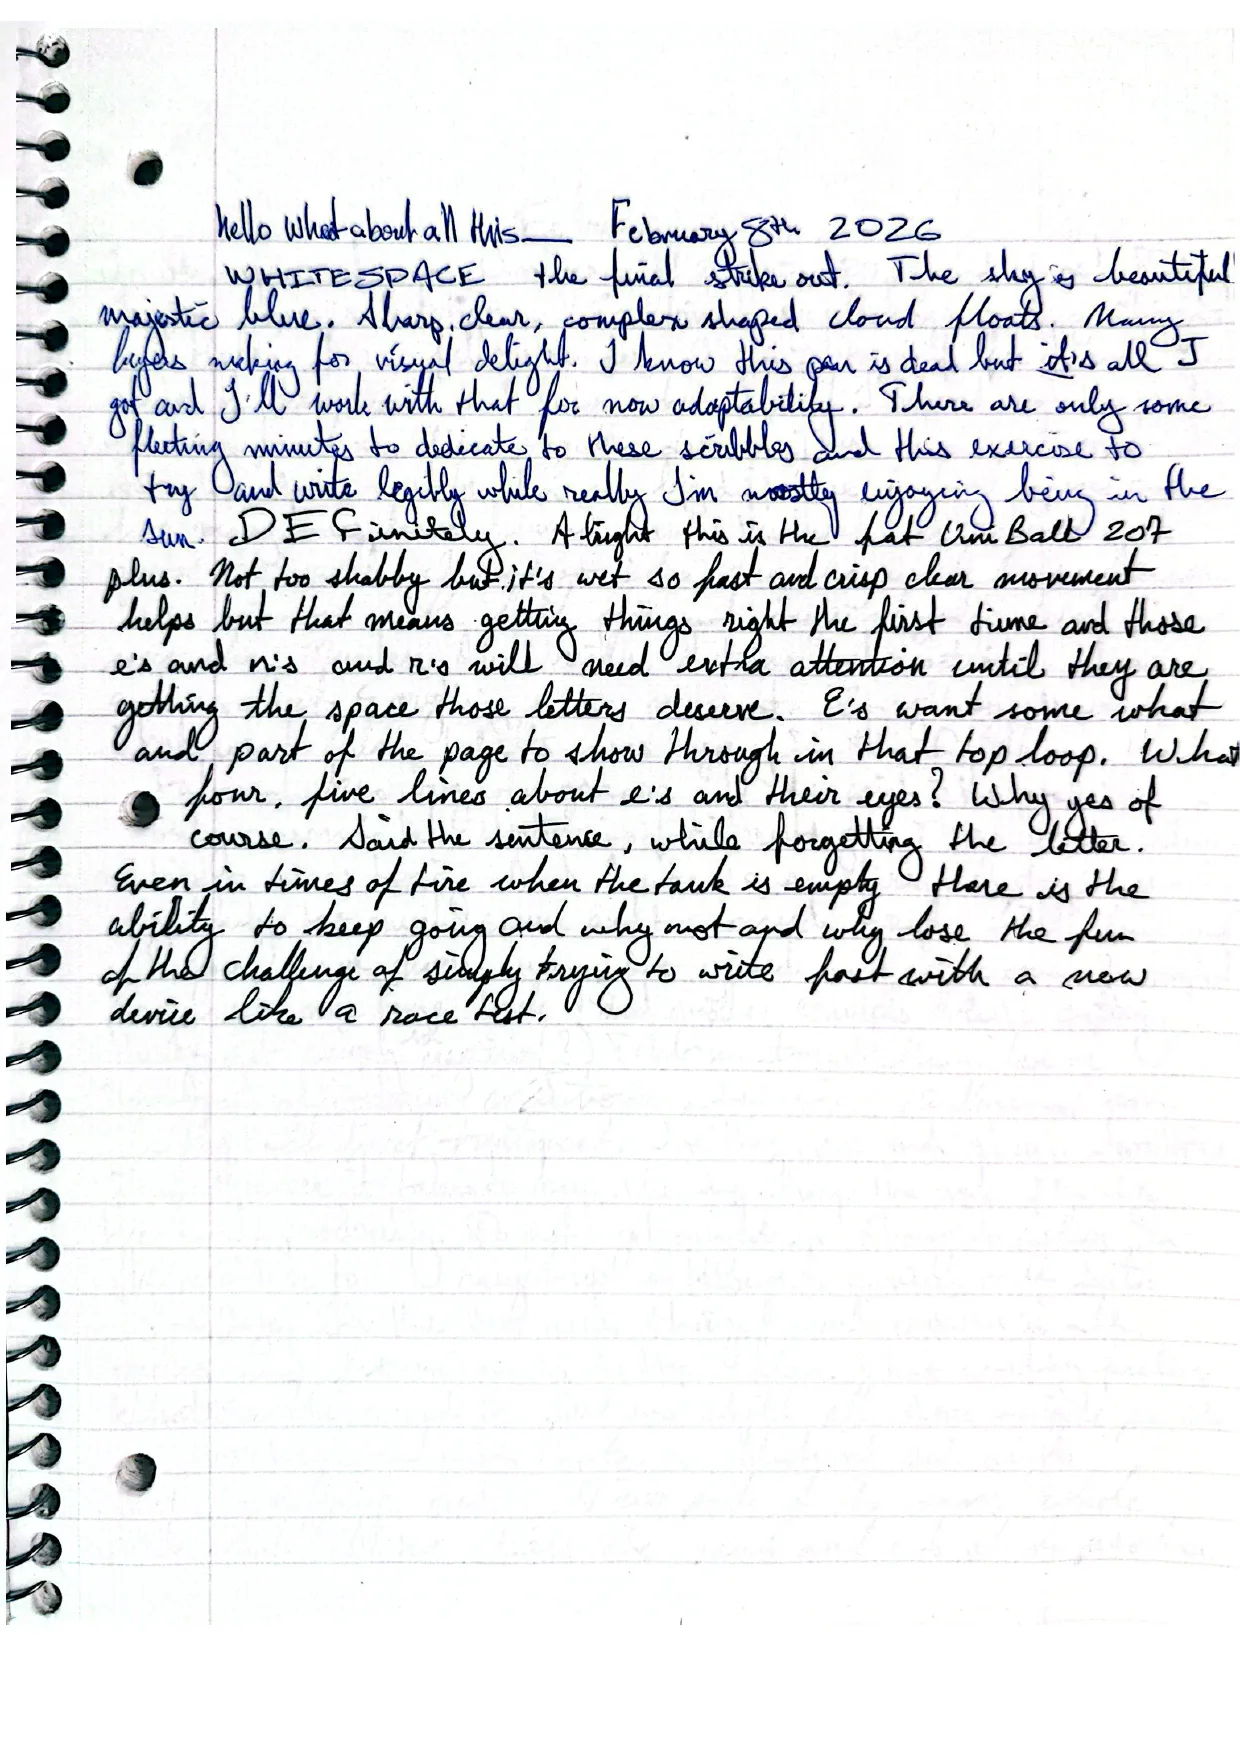 hello What about all this— February 8th 2026
WHITESPACE the final strike out. The sky is beautiful
majestic blue. Sharp, clear, complex shaped cloud floats. Many
layers making for visual delight. I know this pen is dead but it's all I
got and I'll work with that for now adaptability. There are only some
fleeting minutes to dedicate to these scribbles and this exercise to
try and write legibly while really I'm mostly enjoying being in the
sun. DEFinitely. Alright this is the fat Uni Ball 207
plus. Not too shabby but it's wet so fast and crisp clear movement
helps but that means getting things right the first time and those
e's and n's and r's will need extra attention until they are
getting the space those letters deserve. E's want some what
and part of the page to show through in that top loop. What
four, five lines about e's and their eyes? Why yes of
course. Said the sentence, while forgetting the letter.
Even in times of tire when the tank is empty there is the
ability to keep going and why not and why lose the fun
of the challenge of simply trying to write fast with a new
device like a race test.